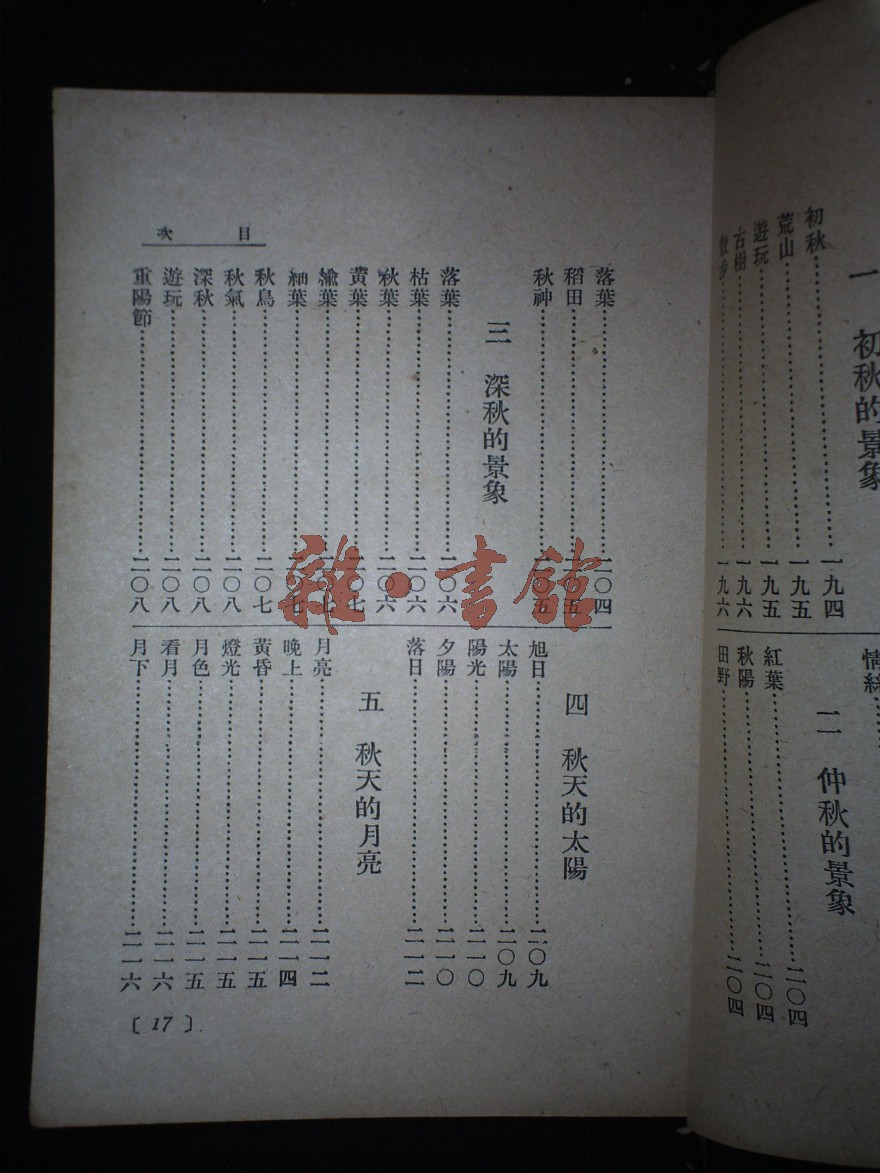 一 初秋的景象
初秋……一九四
荒山……一九五
遊玩……一九五
古樹……一九六
散步……一九六
情絲……
二 仲秋的景象
紅葉……二〇四
秋陽……二〇四
田野……二〇四
目次
落葉……二〇四
稻田……二〇五
秋神……二〇五
三 深秋的景象
落葉……二〇六
枯葉……二〇六
秋葉……二〇六
黃葉……二〇七
葉……二〇七
細葉……二〇七
秋鳥……二〇七
秋氣……二〇八
深秋……二〇八
遊玩……二〇八
重陽節……二〇八
四 秋天的太陽
旭日……二〇九
太陽……二〇九
陽光……二一〇
夕陽……二一〇
落日……二一二
五 秋天的月亮
月亮……二一二
晚上……二一四
黃昏……二一五
燈光……二一五
月色……二一五
看月……二一六
月下……二一六
〔17〕
雜·書館